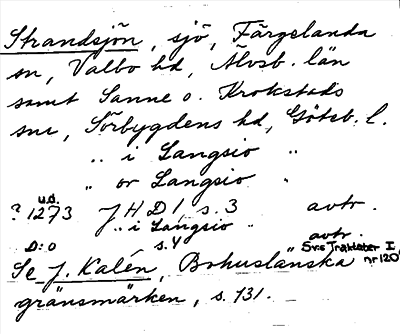 Strandsjön, sjö, Färgelanda
sn, Valbo hd, Älvsb. län
samt Sanne o. Krokstads
snr, Sörbygdens hd, Göteb. l.
,, i Langsio ,,
,, or Langsio ,,
u.d.
? 1273 JHD 1, s. 3 avtr.
,, i Langsio ,,
D:o s. 4 avtr.
Svs Traktater I, nr 120
Se J. Kalén, Bohuslänska
gränsmärken, s. 131.